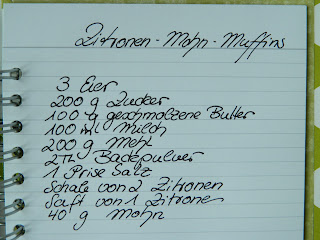 Zitronen-Mohn-Muffins
3 Eier
200 g Zucker
100 g geschmolzene Butter
100 ml Milch
200 g Mehl
2 TL Backpulver
1 Prise Salz
Schale von 2 Zitronen
Saft von 1 Zitrone
40 g Mohn